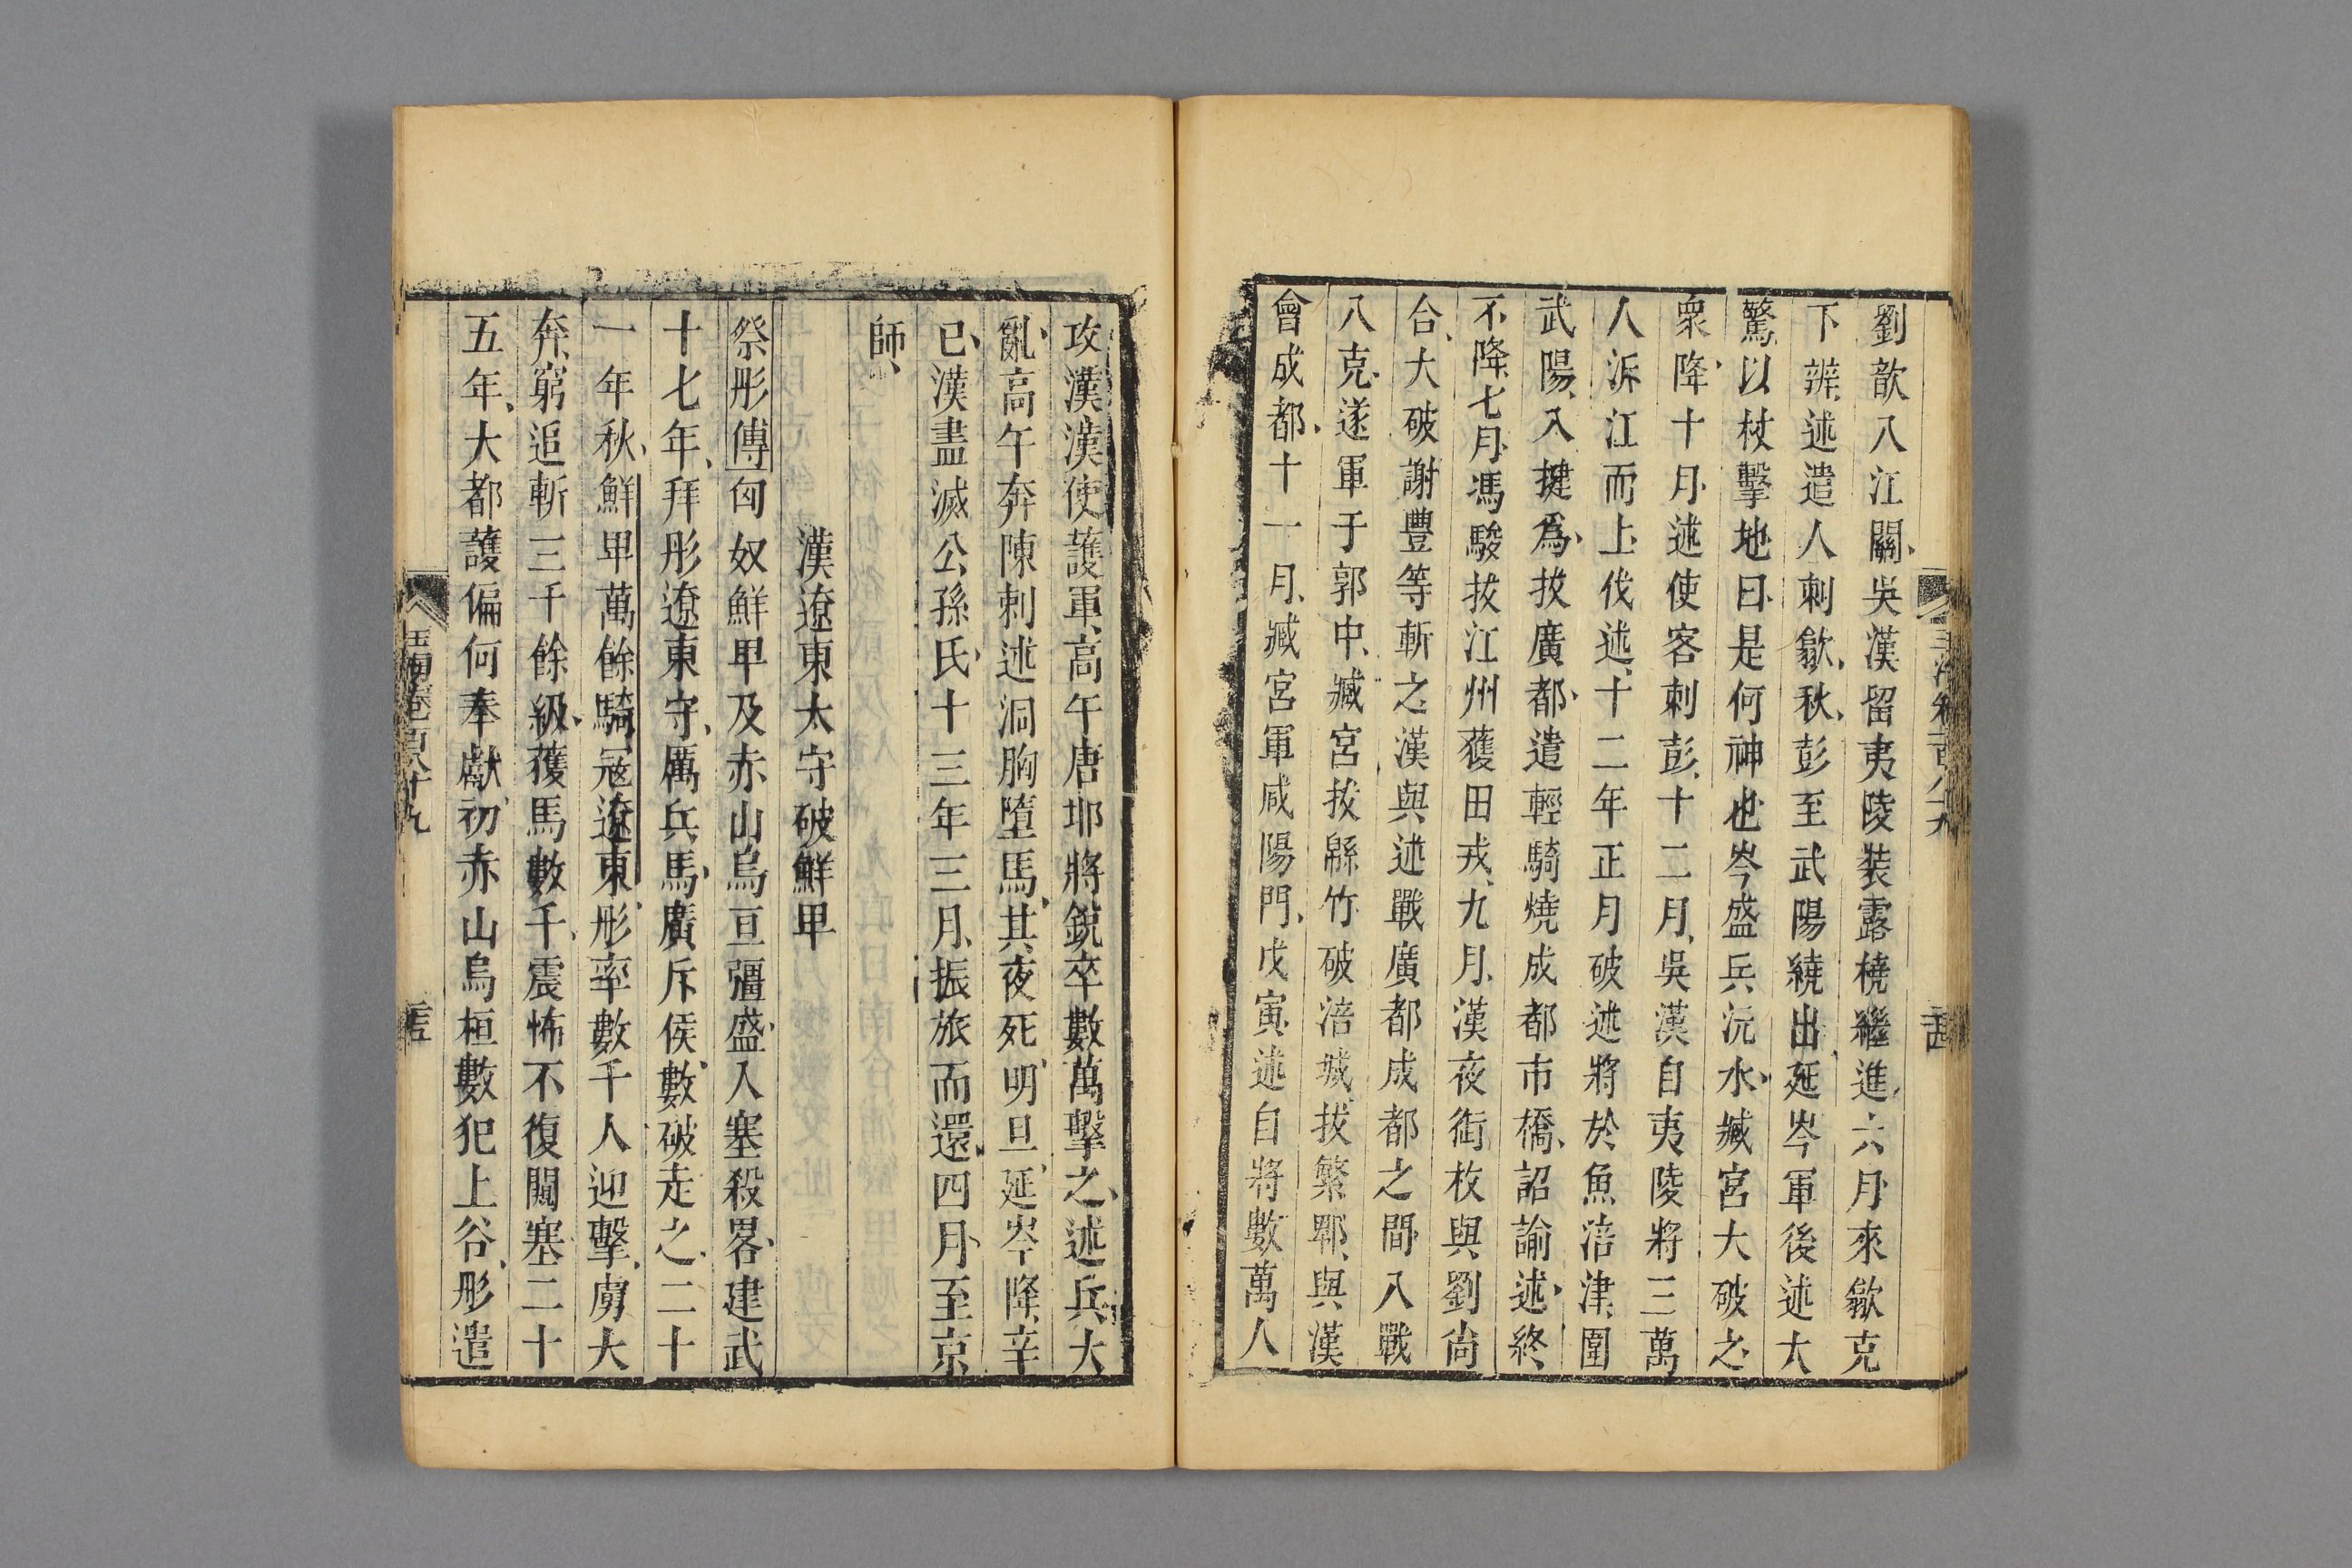 劉歆入江關吳漢留夷陵裝露橈繼進六月來歙克
下辨述遣人刺歙秋彭至武陽繞出延岑軍後述大
驚以杖擊地曰是何神也岑盛兵沅水臧宮大破之
衆降十月述使客刺彭十二月吳漢自夷陵將三萬
人泝江而上伐述十二年正月破述將於魚涪津圍
武陽入揵爲拔廣都遣輕騎燒成都市橋詔諭述終
不降七月馮駿拔江州獲田戎九月漢夜銜枚與劉尚
合大破謝豐等斬之漢與述戰廣都成都之間八戰
八克遂軍于郭中臧宮拔緜竹破涪城拔繁郫與漢
會成都十一月臧宮軍咸陽門戊寅述自將數萬人
攻漢漢使護軍高午唐邯將銳卒數萬擊之述兵大
亂高午奔陳刺述洞胸墮馬其夜死明旦延岑降辛
已漢盡滅公孫氏十三年三月振旅而還四月至京
師
漢遼東太守破鮮卑
祭彤傳匈奴鮮卑及赤山烏亘彊盛入塞殺畧建武
十七年拜彤遼東守厲兵馬廣斥侯數破走之二十
一年秋鮮卑萬餘騎寇遼東彤率數千人迎擊虜大
奔窮追斬三千餘級獲馬數千震怖不復闚塞二十
五年大都護偏何奉獻初赤山烏桓數犯上谷彤遣
玉海卷一百八十九